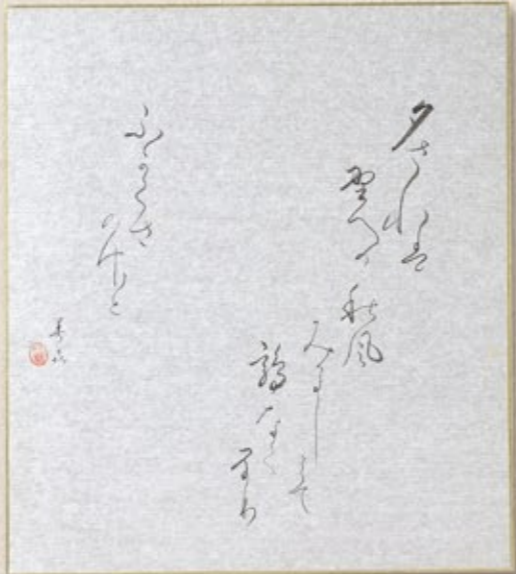 夕されは
野への秋風
みにしみて
鶉なく
なり
ふかくさ
のさと